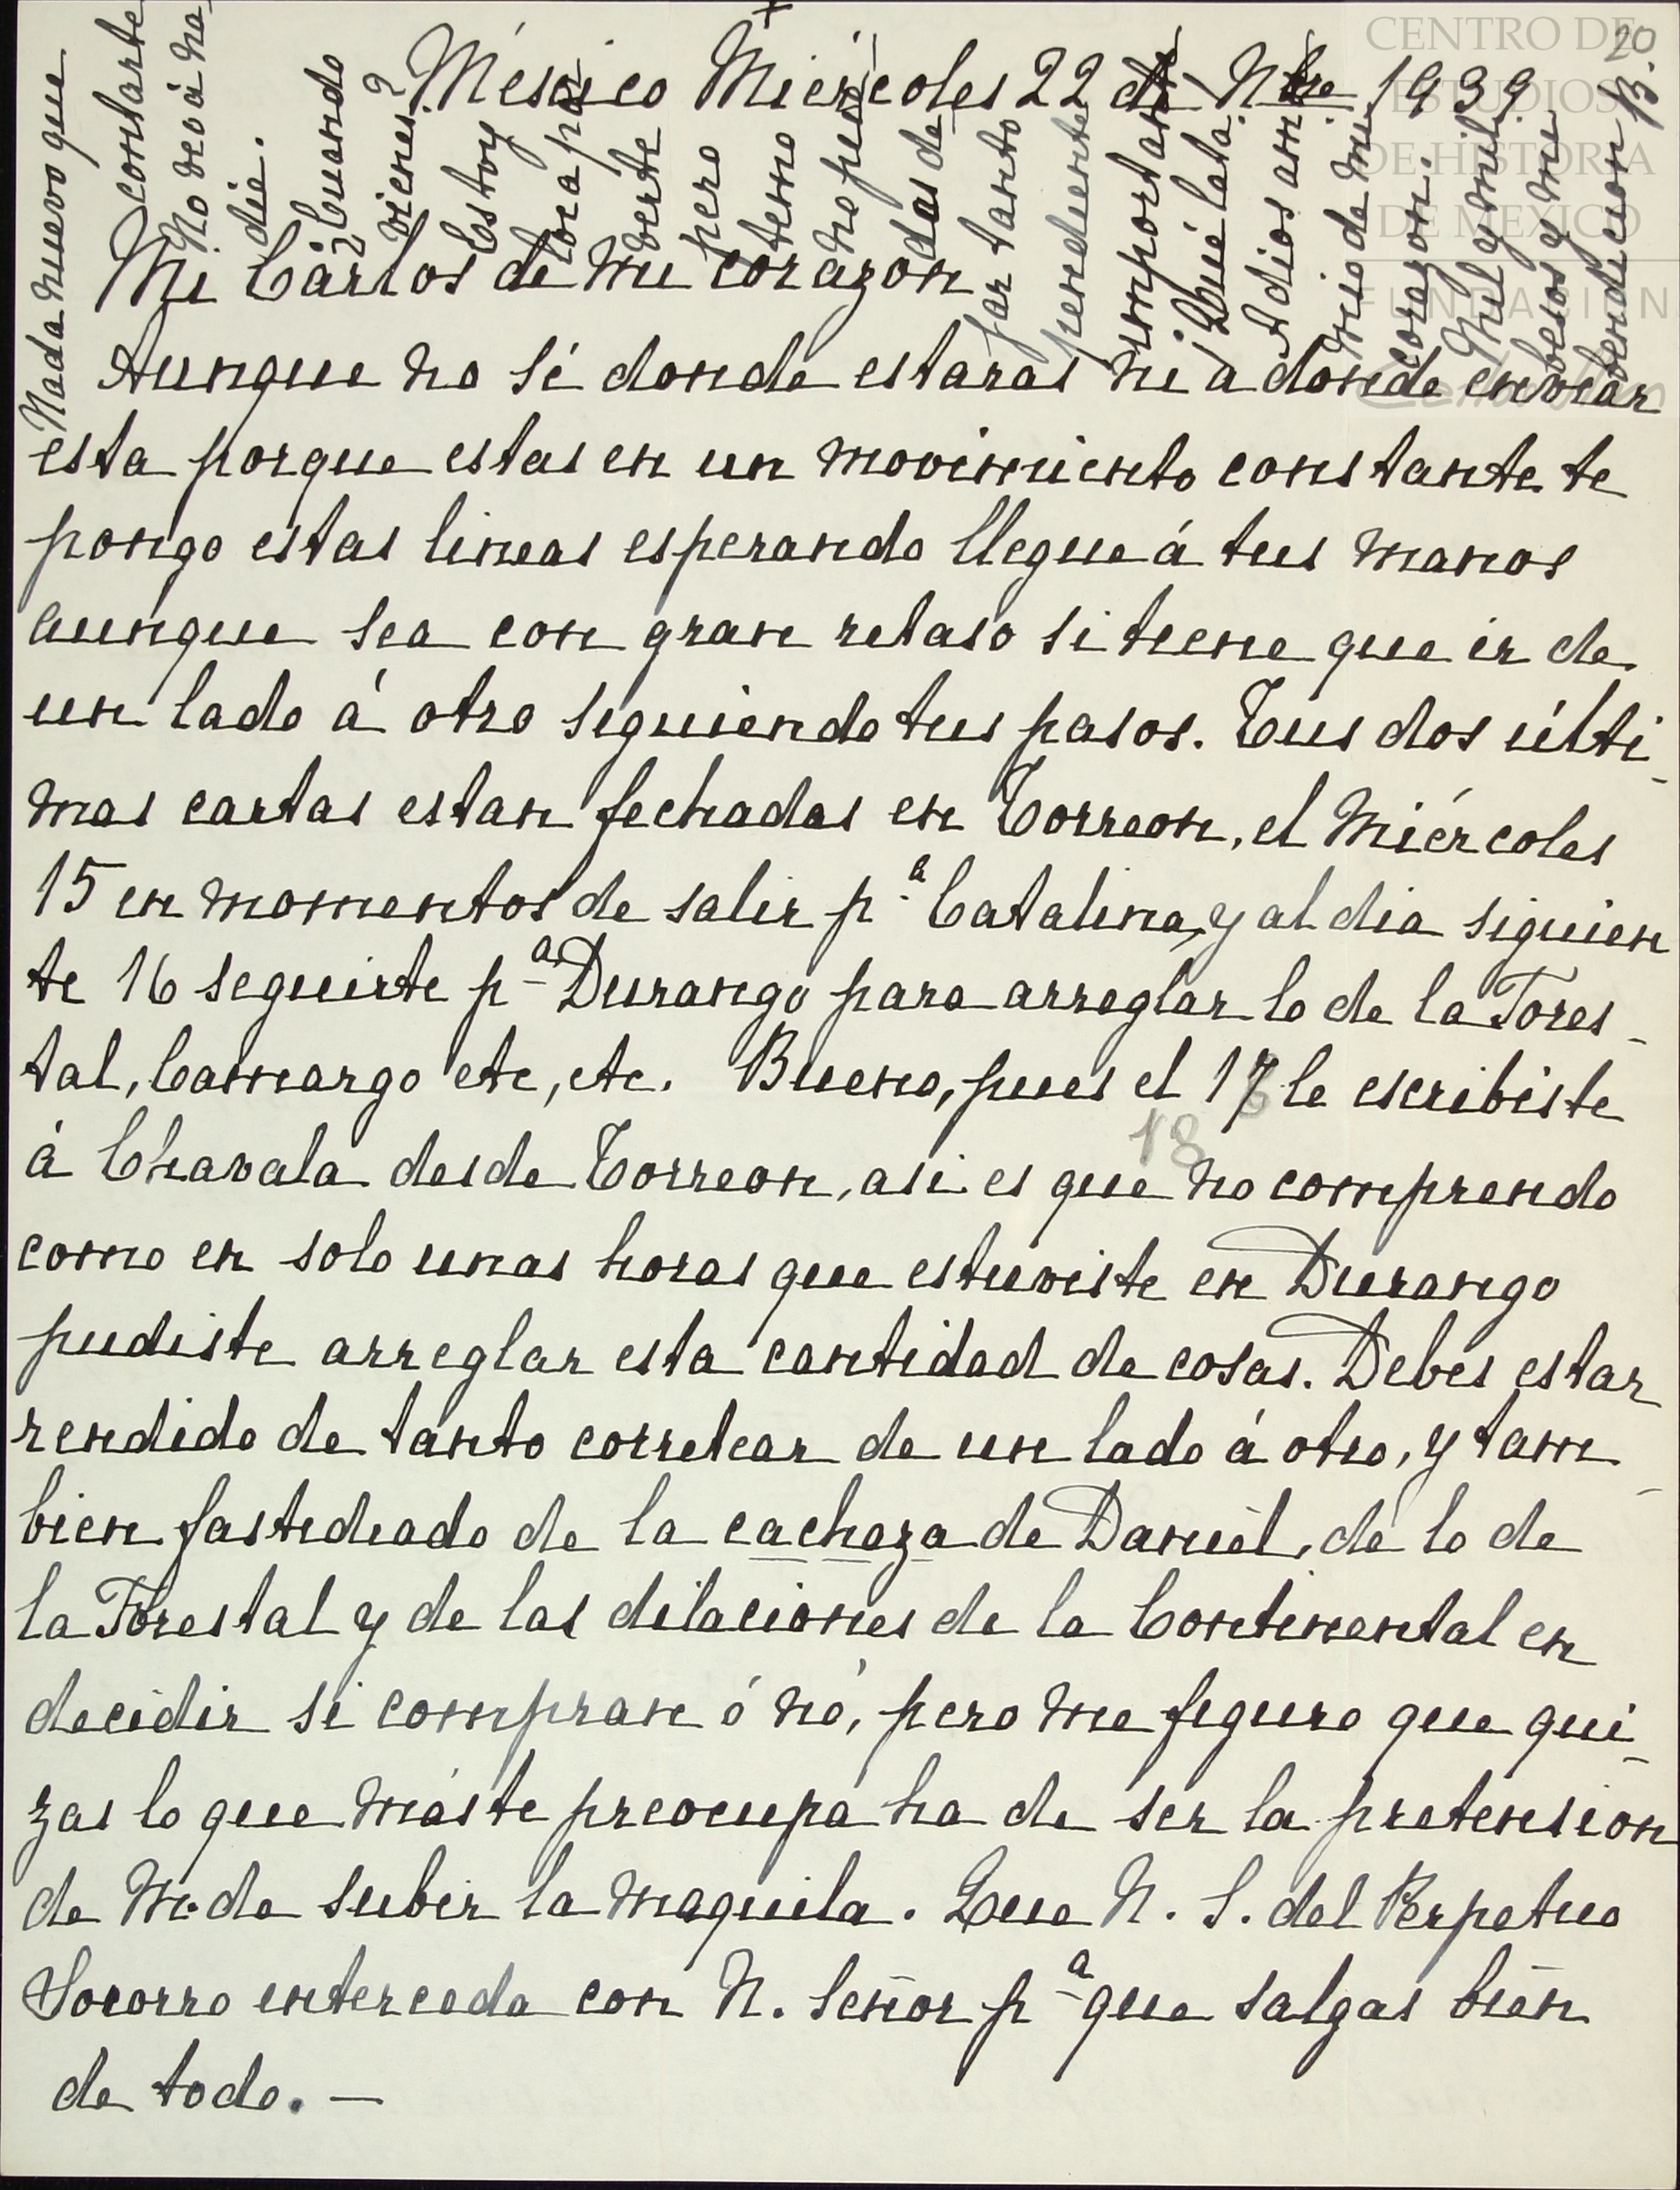 México Miércoles 22 de Nbre 1939.
Mi Cárlos de mi corazon
Aunque no sé donde estaras ni a donde enviar
esta porque estas en un movimiento constante te
pongo estas lineas esperando llegue á tus manos
aunque sea con gran retaso si tiene que ir de
un lado á otro siguiendo tus pasos. Tus dos últi-
mas cartas estan fechadas en Torreon, el Miércoles
15 en momentos de salir pª Catalina, y al dia siguien
te 16 seguirte pª Durango para arreglar lo de la Fores-
tal, Camargo etc, etc. Bueno, pues el 17 le escribiste
18
á Chavala desde Torreon, asi es que no comprendo
como en solo unas horas que estuviste en Durango
pudiste arreglar esta cantidad de cosas. Debes estar
rendido de tanto corretear de un lado á otro, y tam-
bien fastidiado de la cachaza de Daniel, de lo de
la Forestal y de las dilaciones de la Continental en
decidir si compran ó nó, pero me figuro que qui-
zas lo que más te preocupa ha de ser la pretension
de M. de subir la maquila. Que N. S. del Perpetuo
Socorro interceda con N. Señor pª que salgas bien
de todo. —
Nada nuevo que
contarte
No veo á na-
die.
¿Cuando
vienes?
Estoy
loca pr
verte
pero
temo
no pue
das de
jar tanto
pendiente
importante
¡Qué lata!
Adios ani
mio de mi
corazon.
Mil y mil
besos y mi
bendicion
B.
20
CENTRO DE
ESTUDIOS
DE HISTORIA
DE MEXICO
FUNDACIÓN